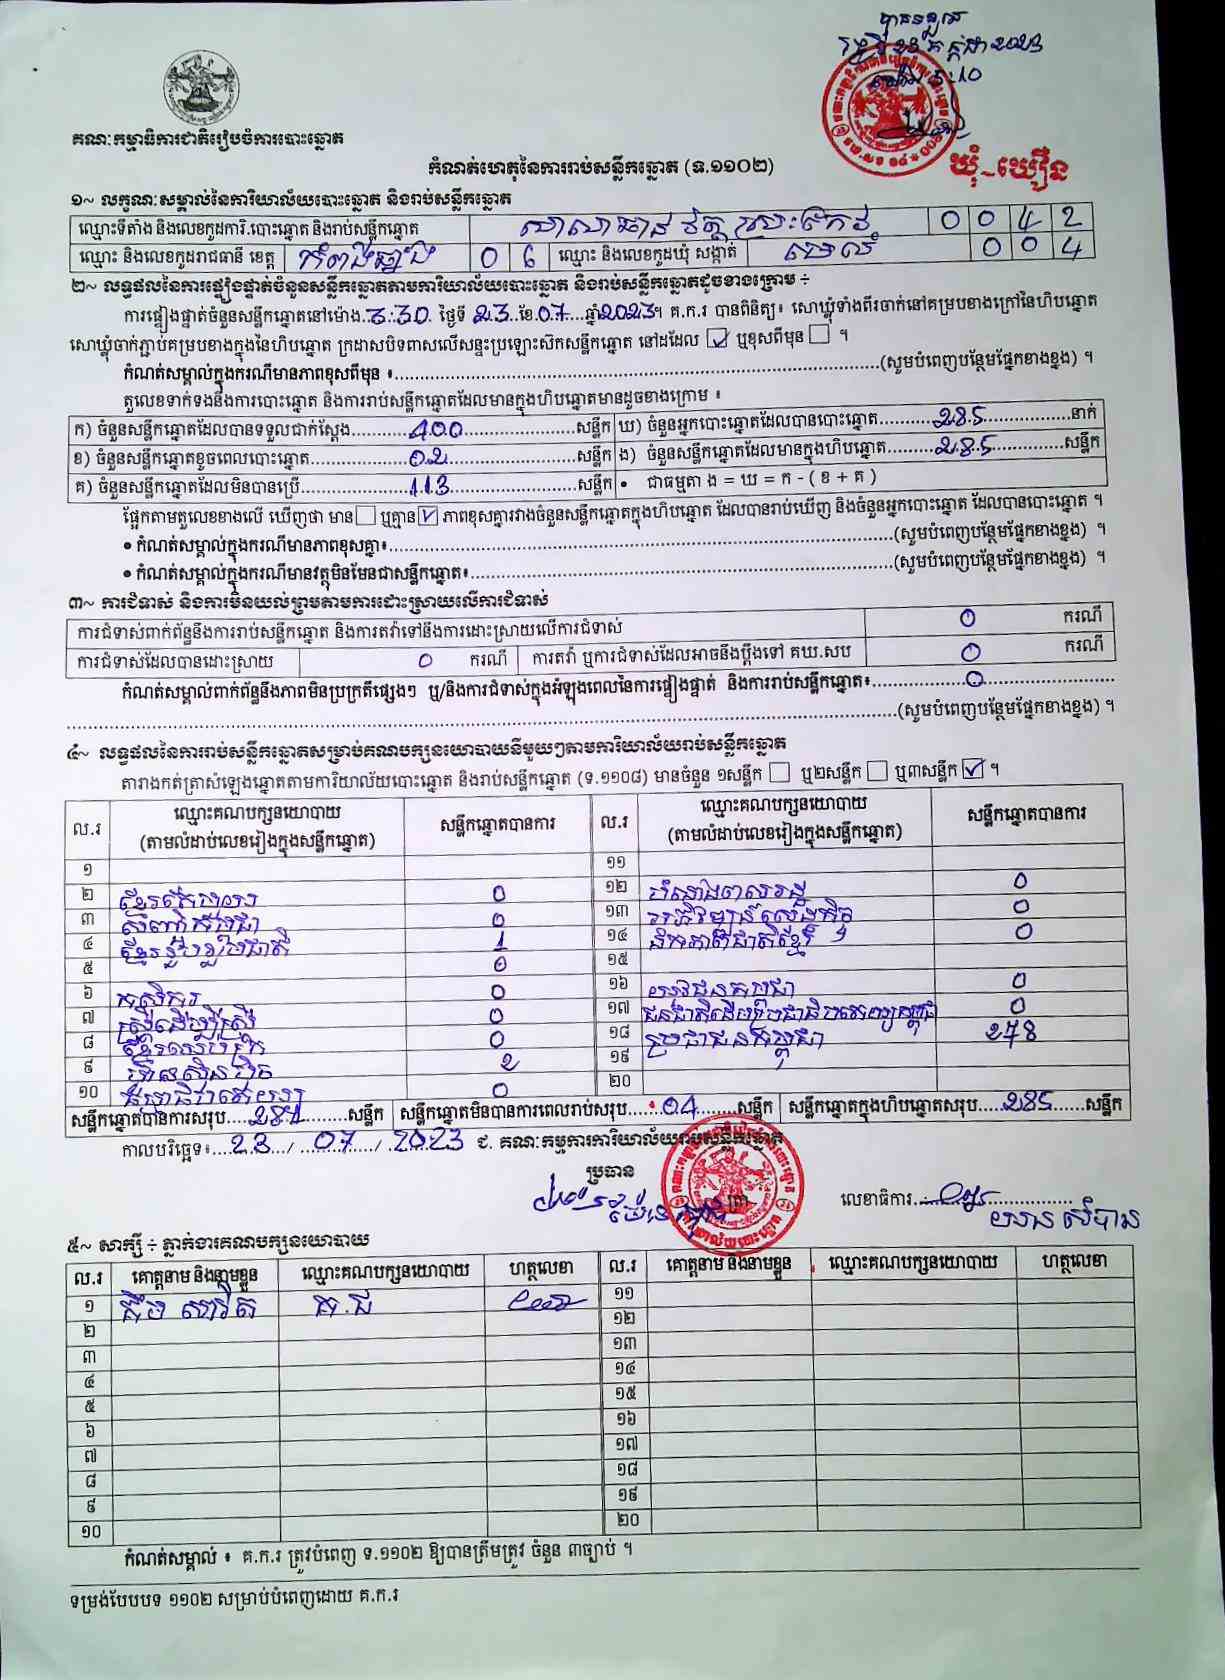 គណៈកម្មាធិការជាតិរៀបចំការបោះឆ្នោត
កំណត់ហេតុនៃការរាប់សន្លឹកឆ្នោត (ទ.១១០២)
ឃុំ
១~ លក្ខណៈសម្គាល់នៃការិយាល័យបោះឆ្នោត និងរាប់សន្លឹកឆ្នោត
ឈ្មោះទីតាំង និងលេខកូដការិ.បោះឆ្នោត និងរាប់សន្លឹកឆ្នោត សាលាឆាន់ វត្ត ស្រះកែវ 0 0 4 2
ឈ្មោះ និងលេខកូដរាជធានី ខេត្ត កំពង់ឆ្នាំង 0 6 ឈ្មោះ និងលេខកូដឃុំ សង្កាត់ មេលំ 0 0 4
២~ លទ្ធផលនៃការផ្ទៀងផ្ទាត់ចំនួនសន្លឹកឆ្នោតតាមការិយាល័យបោះឆ្នោត និងរាប់សន្លឹកឆ្នោតដូចខាងក្រោម ÷
ការផ្ទៀងផ្ទាត់ចំនួនសន្លឹកឆ្នោតនៅម៉ោង 3:30 ថ្ងៃទី 23 ខែ 07 ឆ្នាំ 2023។ គ.ក.រ បានពិនិត្យ៖ សោឃ្លុំទាំងពីរចាក់នៅគម្របខាងក្រៅនៃហិបឆ្នោត
សោឃ្លុំចាក់ភ្ជាប់គម្របខាងក្នុងនៃហិបឆ្នោត ក្រដាសបិទពាសលើសន្ទះប្រឡោះស៊កសន្លឹកឆ្នោត នៅដដែល ☑ ឬខុសពីមុន ☐ ។
កំណត់សម្គាល់ក្នុងករណីមានភាពខុសពីមុន ៖ (សូមបំពេញបន្ថែមផ្នែកខាងខ្នង) ។
តួលេខទាក់ទងនឹងការបោះឆ្នោត និងការរាប់សន្លឹកឆ្នោតដែលមានក្នុងហិបឆ្នោតមានដូចខាងក្រោម ៖
ក) ចំនួនសន្លឹកឆ្នោតដែលបានទទួលជាក់ស្ដែង 400 សន្លឹក ឃ) ចំនួនអ្នកបោះឆ្នោតដែលបានបោះឆ្នោត 285 នាក់
ខ) ចំនួនសន្លឹកឆ្នោតខូចពេលបោះឆ្នោត 02 សន្លឹក ង) ចំនួនសន្លឹកឆ្នោតដែលមានក្នុងហិបឆ្នោត 285 សន្លឹក
គ) ចំនួនសន្លឹកឆ្នោតដែលមិនបានប្រើ 113 សន្លឹក • ជាធម្មតា ង = ឃ = ក - ( ខ + គ )
ផ្អែកតាមតួលេខខាងលើ ឃើញថា មាន ☐ ឬគ្មាន ☑ ភាពខុសគ្នារវាងចំនួនសន្លឹកឆ្នោតក្នុងហិបឆ្នោត ដែលបានរាប់ឃើញ និងចំនួនអ្នកបោះឆ្នោត ដែលបានបោះឆ្នោត ។
• កំណត់សម្គាល់ក្នុងករណីមានភាពខុសគ្នា៖ (សូមបំពេញបន្ថែមផ្នែកខាងខ្នង) ។
• កំណត់សម្គាល់ក្នុងករណីមានវត្ថុមិនមែនជាសន្លឹកឆ្នោត៖ (សូមបំពេញបន្ថែមផ្នែកខាងខ្នង) ។
៣~ ការជំទាស់ និងការមិនយល់ព្រមតាមការដោះស្រាយលើការជំទាស់
ការជំទាស់ពាក់ព័ន្ធនឹងការរាប់សន្លឹកឆ្នោត និងការតវ៉ាទៅនឹងការដោះស្រាយលើការជំទាស់ 0 ករណី
ការជំទាស់ដែលបានដោះស្រាយ 0 ករណី ការតវ៉ា ឬការជំទាស់ដែលអាចនឹងប្ដឹងទៅ គឃ.សប 0 ករណី
កំណត់សម្គាល់ពាក់ព័ន្ធនឹងភាពមិនប្រក្រតីផ្សេងៗ ឬ/និងការជំទាស់ក្នុងអំឡុងពេលនៃការផ្ទៀងផ្ទាត់ និងការរាប់សន្លឹកឆ្នោត៖ 0
(សូមបំពេញបន្ថែមផ្នែកខាងខ្នង) ។
៤~ លទ្ធផលនៃការរាប់សន្លឹកឆ្នោតសម្រាប់គណបក្សនយោបាយនីមួយៗតាមការិយាល័យរាប់សន្លឹកឆ្នោត
តារាងកត់ត្រាសំឡេងឆ្នោតតាមការិយាល័យបោះឆ្នោត និងរាប់សន្លឹកឆ្នោត (ទ.១១០៨) មានចំនួន ១សន្លឹក ☐ ឬ២សន្លឹក ☐ ឬ៣សន្លឹក ☑ ។
ល.រ ឈ្មោះគណបក្សនយោបាយ (តាមលំដាប់លេខរៀងក្នុងសន្លឹកឆ្នោត) សន្លឹកឆ្នោតបានការ ល.រ ឈ្មោះគណបក្សនយោបាយ (តាមលំដាប់លេខរៀងក្នុងសន្លឹកឆ្នោត) សន្លឹកឆ្នោតបានការ
១ ១១
២ 0 ១២ 0
៣ 0 ១៣ 0
៤ ខ្មែររួបរួមជាតិ 1 ១៤ ឯកភាពជាតិខ្មែរ 0
៥ 0 ១៥
៦ កសិករ 0 ១៦ យុវជនកម្ពុជា 0
៧ ស្ត្រីដើម្បីស្ត្រី 0 ១៧ 0
៨ 0 ១៨ ប្រជាជនកម្ពុជា 278
៩ ហ៊្វុនស៊ិនប៉ិច 2 ១៩
១០ 0 ២០
សន្លឹកឆ្នោតបានការសរុប 281 សន្លឹក សន្លឹកឆ្នោតមិនបានការពេលរាប់សរុប 04 សន្លឹក សន្លឹកឆ្នោតក្នុងហិបឆ្នោតសរុប 285 សន្លឹក
កាលបរិច្ឆេទ៖ 23 / 07 / 2023 ជ. គណៈកម្មការការិយាល័យរាប់សន្លឹកឆ្នោត
ប្រធាន
លេខាធិការ
៥~ សាក្សី ÷ ភ្នាក់ងារគណបក្សនយោបាយ
ល.រ គោត្តនាម និងនាមខ្លួន ឈ្មោះគណបក្សនយោបាយ ហត្ថលេខា ល.រ គោត្តនាម និងនាមខ្លួន ឈ្មោះគណបក្សនយោបាយ ហត្ថលេខា
១ ១១
២ ១២
៣ ១៣
៤ ១៤
៥ ១៥
៦ ១៦
៧ ១៧
៨ ១៨
៩ ១៩
១០ ២០
កំណត់សម្គាល់ ៖ គ.ក.រ ត្រូវបំពេញ ទ.១១០២ ឱ្យបានត្រឹមត្រូវ ចំនួន ៣ច្បាប់ ។
ទម្រង់បែបបទ ១១០២ សម្រាប់បំពេញដោយ គ.ក.រ